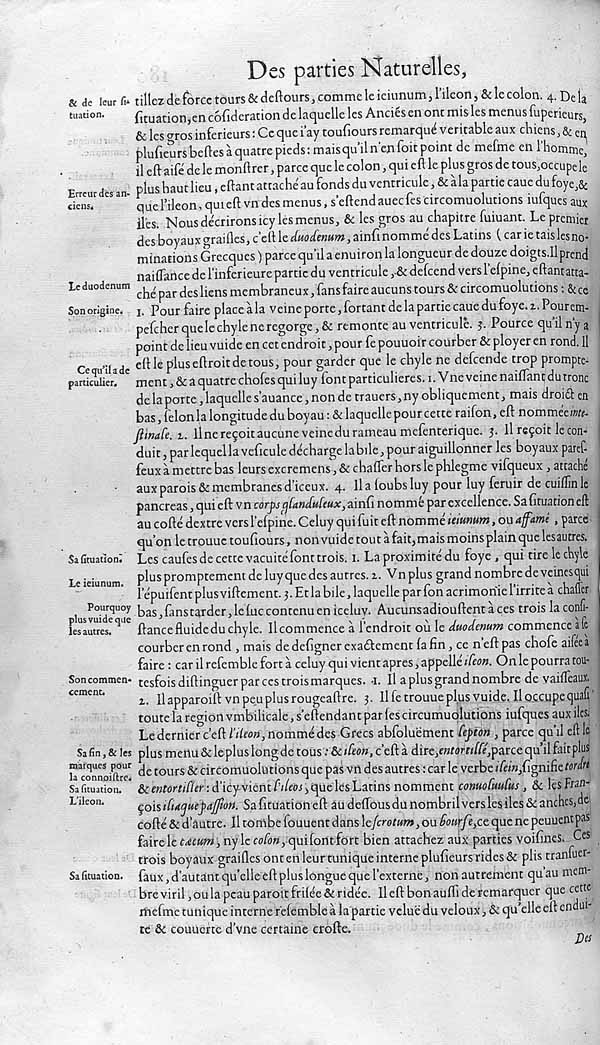 Des parties Naturelles,
& de leur ſi-
tuation.
tillez de force tours & deſtours, comme le ieiunum, l'ileon, & le colon. 4. De la
ſituation, en cóſideration de laquelle les Anciés en ont mis les menus ſuperieurs,
& les gros inferieurs: Ce que i'ay touſiours remarqué veritable aux chiens, & en
pluſieurs beſtes à quatre pieds: mais qu'il n'en ſoit point de meſme en l'homme,
il eſt aiſé de le monſtrer, parce que le colon, qui eſt le plus gros de tous, occupe le
Erreur des an-
ciens.
plus haut lieu, eſtant attaché au fonds du ventricule, & à la partie caue du foye, &
que l'ileon, qui eſt vn des menus, s'eſtend auec ſes circomuolutions iuſques aux
iles. Nous décrirons icy les menus, & les gros au chapitre ſuiuant. Le premier
des boyaux graiſles, c'eſt le duodenum, ainſi nommé des Latins (car ie tais les no-
minations Grecques) parce qu'il a enuiron la longueur de douze doigts. Il prend
naiſſance de l'inferieure partie du ventricule, & deſcend vers l'eſpine, eſtant atta-
Le duodenum
ché par des liens membraneux, ſans faire aucuns tours & circomuolutions: & ce
Son origine.
1. Pour faire place à la veine porte, ſortant de la partie caue du foye. 2. Pour em-
peſcher que le chyle ne regorge, & remonte au ventricule. 3. Pource qu'il n'y a
point de lieu vuide en cet endroit, pour ſe pouuoir courber & ployer en rond. Il
Ce qu'il a de
particulier.
eſt le plus eſtroit de tous, pour garder que le chyle ne deſcende trop prompte-
ment, & a quatre choſes qui luy ſont particulieres. 1. Vne veine naiſſant du tronc
de la porte, laquelle s'auance, non de trauers, ny obliquement, mais droict en
bas, ſelon la longitude du boyau: & laquelle pour cette raiſon, eſt nommée inte-
ſtinale. 2. Il ne reçoit aucune veine du rameau meſenterique. 3. Il reçoit le con-
duit, par lequel la veſicule décharge la bile, pour aiguillonner les boyaux pareſ-
ſeux à mettre bas leurs excremens, & chaſſer hors le phlegme viſqueux, attaché
aux parois & membranes d'iceux. 4. Il a ſoubs luy pour luy ſeruir de cuiſſin le
pancreas, qui eſt vn corps glanduleux, ainſi nommé par excellence. Sa ſituation eſt
au coſté dextre vers l'eſpine. Celuy qui ſuit eſt nommé ieiunum, ou affamé, parce
qu'on le trouue touſiours, non vuide tout à fait, mais moins plain que les autres.
Sa ſituation.
Les cauſes de cette vacuité ſont trois. 1. La proximité du foye, qui tire le chyle
Le ieiunum.
plus promptement de luy que des autres. 2. Vn plus grand nombre de veines qui
l'épuiſent plus viſtement. 3. Et la bile, laquelle par ſon acrimonie l'irrite à chaſſer
Pourquoy
plus vuide que
les autres.
bas, ſans tarder, le ſuc contenu en iceluy. Aucuns adiouſtent à ces trois la conſi-
ſtance fluide du chyle. Il commence à l'endroit où le duodenum commence à ſe
courber en rond, mais de deſigner exactement ſa fin, ce n'eſt pas choſe aiſée à
faire: car il reſemble fort à celuy qui vient apres, appellé ileon. On le pourra tou-
Son commen-
cement.
tesfois diſtinguer par ces trois marques. 1. Il a plus grand nombre de vaiſſeaux.
2. Il apparoiſt vn peu plus rougeaſtre. 3. Il ſe trouue plus vuide. Il occupe quaſi
toute la region vmbilicale, s'eſtendant par ſes circumuolutions iuſques aux iles.
Le dernier c'eſt l'ileon, nommé des Grecs abſoluëment lepton, parce qu'il eſt le
Sa fin, & les
marques pour
la connoiſtre.
plus menu & le plus long de tous: & ileon, c'eſt à dire, entortillé, parce qu'il fait plus
de tours & circomuolutions que pas vn des autres: car le verbe ilein, ſignifie tordre
Sa ſituation.
& entortiller: d'icy vient l'ileos, que les Latins nomment conuoluulus, & les Fran-
L'ileon.
çois iliaque paſſion. Sa ſituation eſt au deſſous du nombril vers les iles & anches, de
coſté & d'autre. Il tombe ſouuent dans le ſcrotum, ou bourſe, ce que ne peuuent pas
faire le cæcum, ny le colon, qui ſont fort bien attachez aux parties voiſines. Ces
trois boyaux graiſles ont en leur tunique interne pluſieurs rides & plis tranſuer-
Sa ſituation.
ſaux, d'autant qu'elle eſt plus longue que l'externe, non autrement qu'au mem-
bre viril, ou la peau paroit friſée & ridée. Il eſt bon auſſi de remarquer que cette
meſme tunique interne reſemble à la partie veluë du veloux, & qu'elle eſt endui-
te & couuerte d'vne certaine croſte.
Des